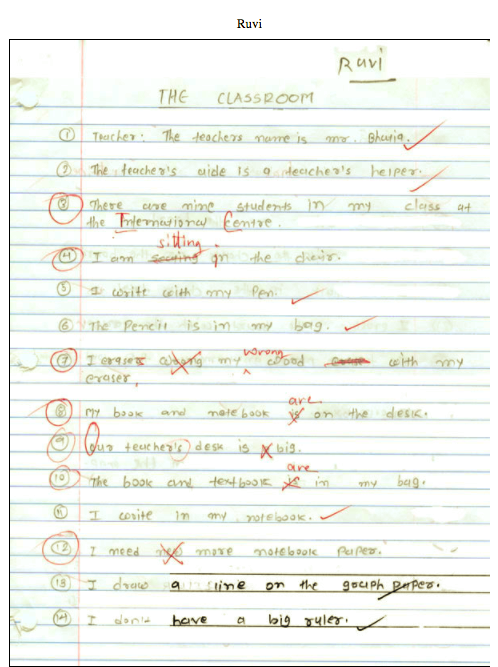 Ruvi
Ruvi
THE CLASSROOM
① Teacher: The teachers name is mr. Bhatia.
② The teacher's aide is a teacher's helper.
③ There are nine students in my class at
the International Centre.
sitting
④ I am in the chair.
⑤ I writt with my Pen.
⑥ The Pencil is in my bag.
wrong
⑦ I erases wrong my wood with my
eraser,
are
⑧ My book and notebook is on the desk.
⑨ Our teacher's desk is big.
are
⑩ The book and textbook is in my bag.
⑪ I write in my notebook.
⑫ I need more notebook Paper.
⑬ I draw a line on the graph paper.
⑭ I don't have a big ruler.